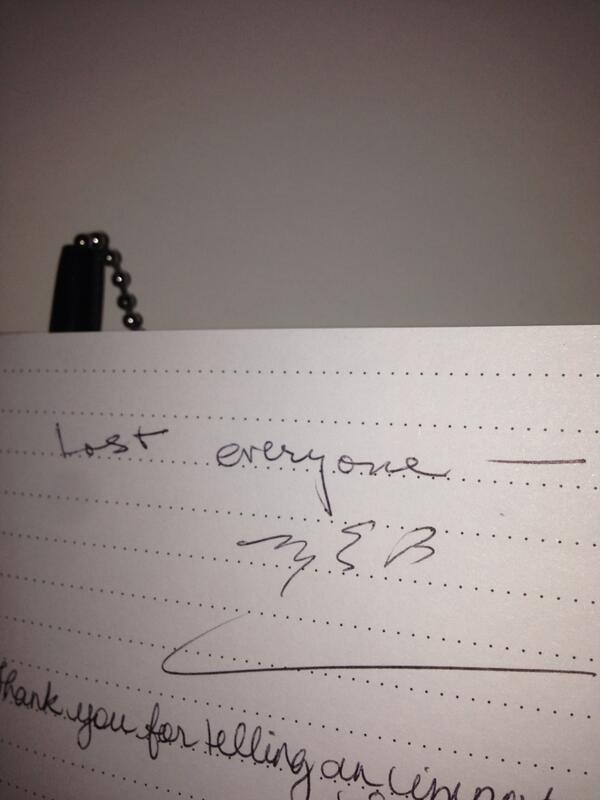 Lost everyone —
MEB
Thank you for telling an